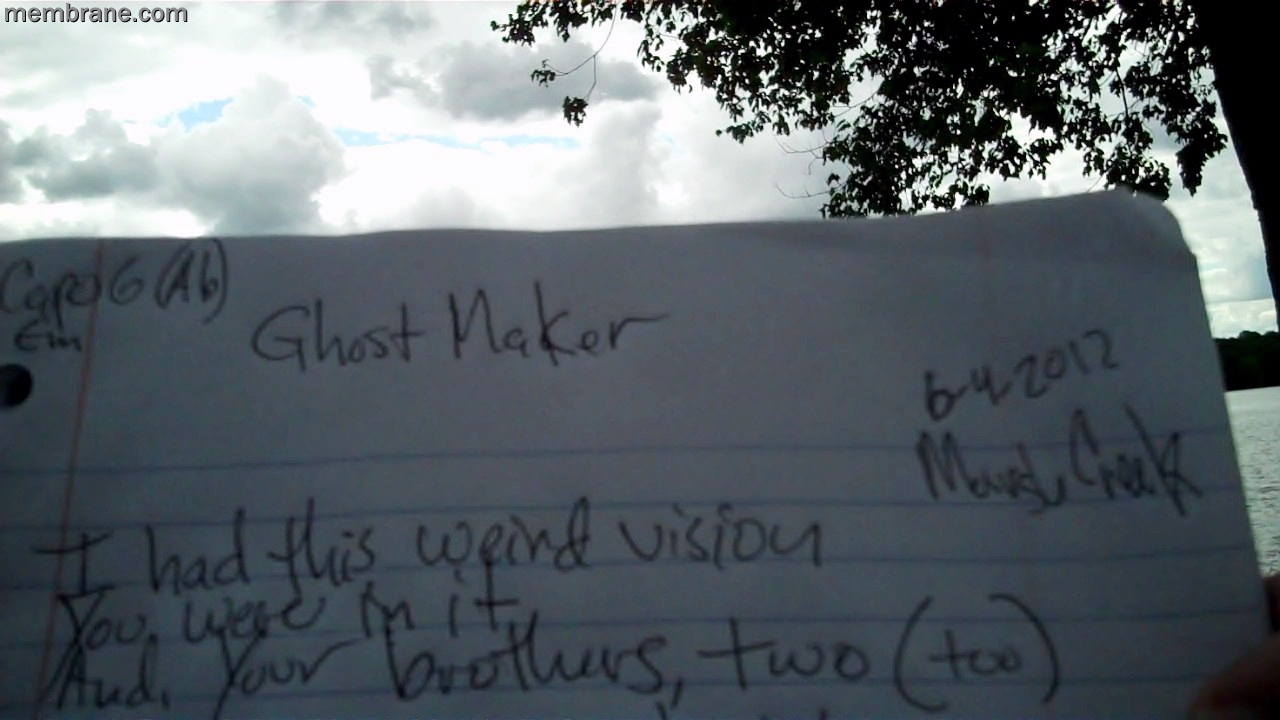 membrane.com
Capo 6 (Ab)
Em
Ghost Maker
6-4-2012
Creek
I had this weird vision
You, were in it,
And, Your brothers, two (too)